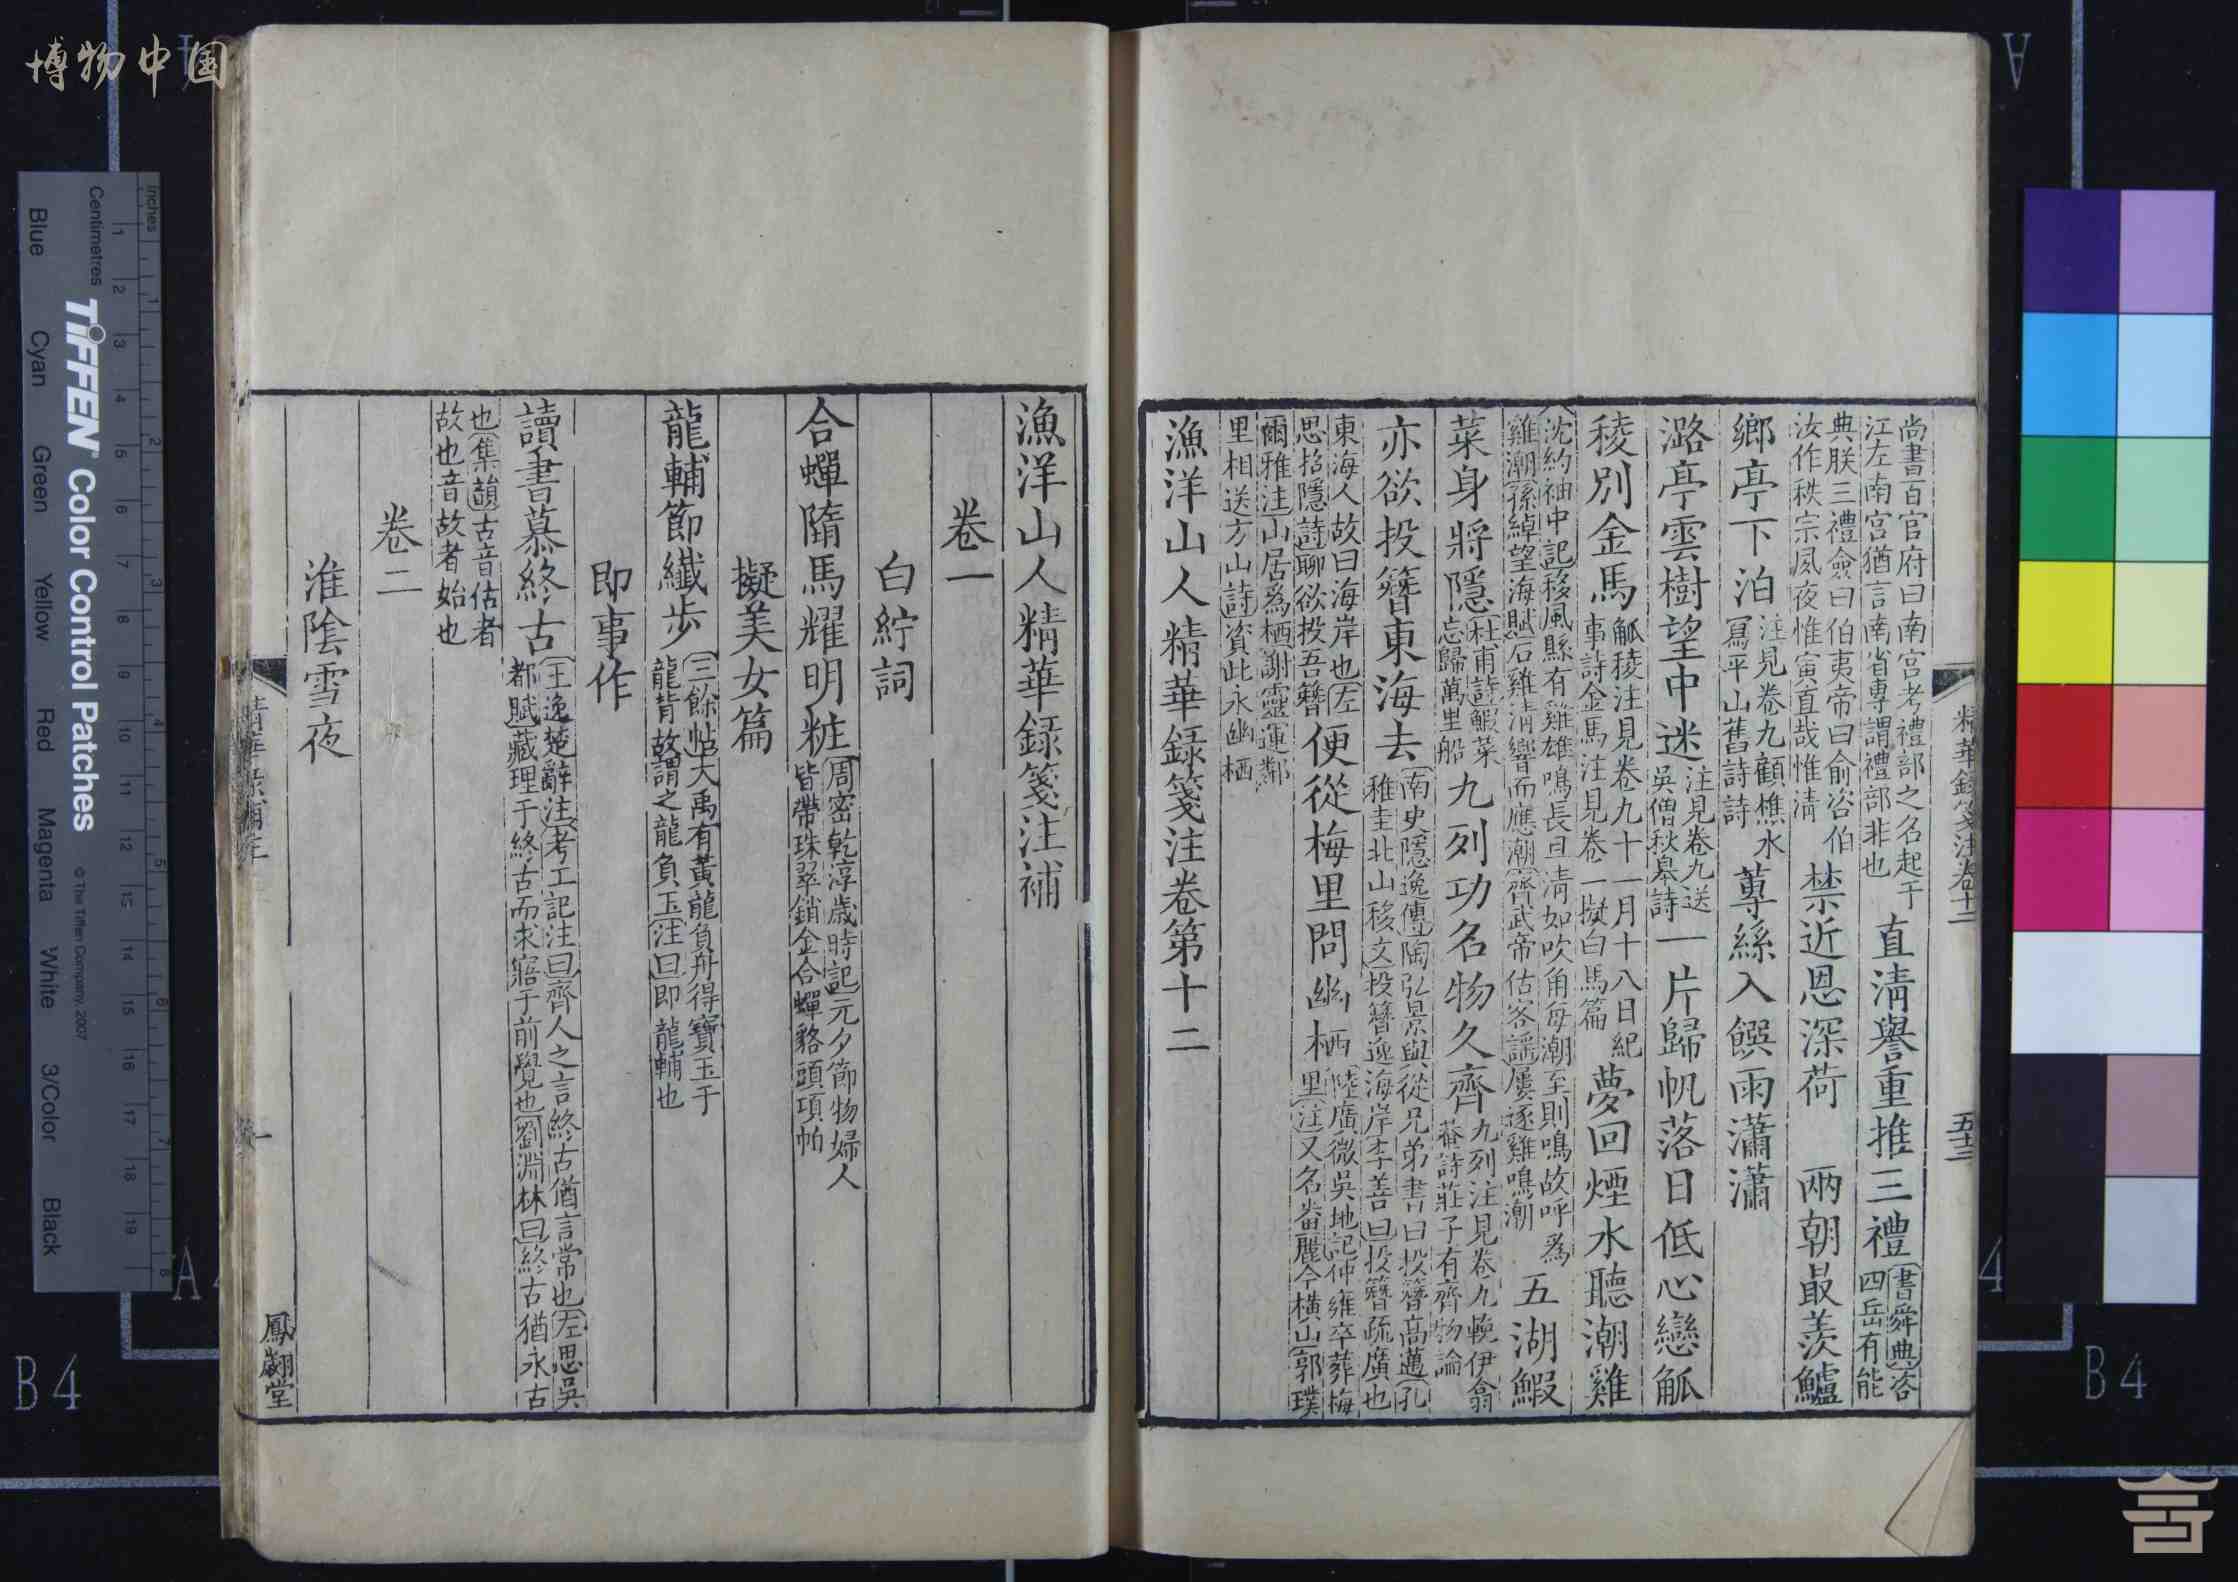 博物中国
尚書百官府曰南宮考禮部之名起于
江左南宮猶言南省專謂禮部非也
直清譽重推三禮
書舜典咨
四岳有能
典朕三禮僉曰伯夷帝曰俞咨伯
汝作秩宗夙夜惟寅直哉惟清
禁近恩深荷 兩朝最羨鱸
鄉亭下泊
注見卷九顧樵水
冩平山舊詩詩
蓴絲入饌雨瀟瀟
潞亭雲樹望中迷
注見卷九送
吳僧秋皋詩
一片歸帆落日低心戀觚
稜別金馬
觚稜注見卷九十一月十八日紀
事詩金馬注見卷一擬白馬篇
夢回煙水聽潮雞
沈約袖中記移風縣有雞雄鳴長且清如吹角每潮至則鳴故呼爲
雞潮孫綽望海賦石雞清響而應潮齊武帝估客謡屢逐雞鳴潮
五湖鰕
菜身將隱
杜甫詩鰕菜
忘歸萬里船
九列功名物久齊
九列注見卷九輓伊翕
菴詩莊子有齊物論
亦欲投簪東海去
南史隱逸傳陶弘景與從兄弟書曰投簪高邁孔
稚圭北山移文投簪逸海岸李善曰投簪疏廣也
東海人故曰海岸也左
思招隱詩聊欲投吾簪
便從梅里問幽栖
陸廣微吳地記仲雍卒葬梅
里注又名畨麗今橫山郭璞
爾雅注山居爲栖謝靈運鄰
里相送方山詩資此永幽栖
漁洋山人精華錄箋注卷第十二
精華錄箋注卷十二
五十三
漁洋山人精華錄箋注補
卷一
白紵詞
合蟬隋馬耀明粧
周密乾淳歲時記元夕節物婦人
皆帶珠翠銷金合蟬貉頭項帕
擬美女篇
龍輔節纖步
三餘帖大禹有黃龍負舟得寶玉于
龍背故謂之龍負玉注曰即龍輔也
即事作
讀書慕終古
王逸楚辭注考工記注曰齊人之言終古猶言常也左思吳
都賦藏理于終古而求寤于前覺也劉淵林曰終古猶永古
也集韻古音估者
故也音故者始也
卷二
淮陰雪夜
一
鳳翽堂
inches
Centimetres
1 2 3 4 5 6 7 8 9 10 11 12 13 14 15 16 17 18 19
1 2 3 4 5 6 7 8
TIFFEN Color Control Patches
© The Tiffen Company, 2007
Blue Cyan Green Yellow Red Magenta White 3/Color Black
B4
B4
A